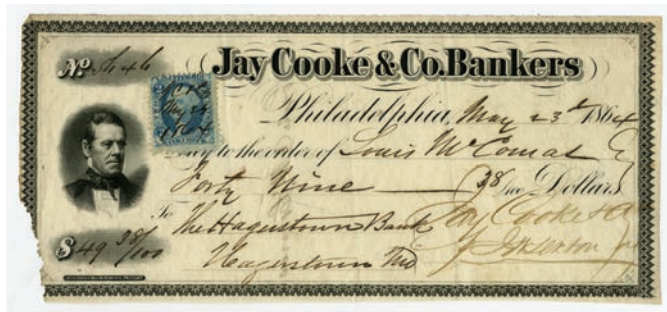 No. 446
Jay Cooke & Co. Bankers
Philadelphia, May 23d 1864
Pay to the order of Louis McComas Esq
Forty Nine 38/100 Dollars
To The Hagerstown Bank Jay Cooke & Co
$49 38/100 Hagerstown Md